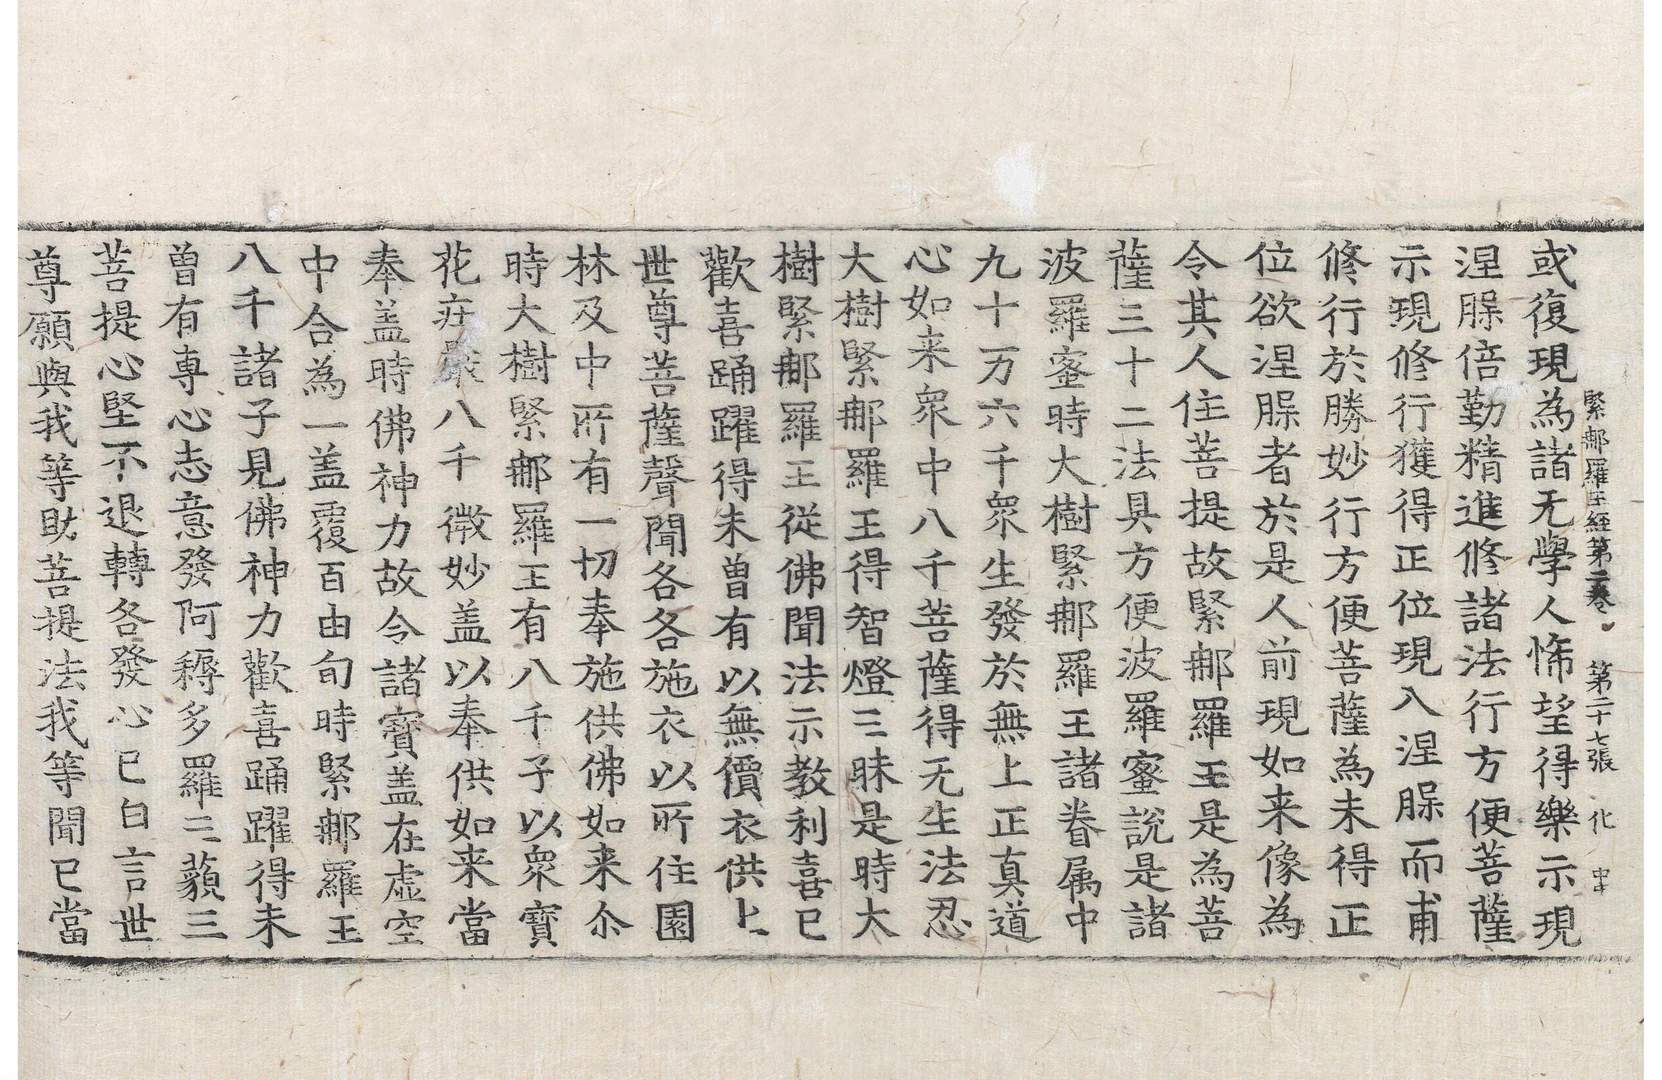 緊那羅王経第二卷 第二十七張 化 中
或復現為諸无學人悕望得樂示現
涅槃倍勤精進修諸法行方便菩薩
示現修行獲得正位現入涅槃而甫
修行於勝妙行方便菩薩為未得正
位欲涅槃者於是人前現如来像為
令其人住菩提故緊那羅王是為菩
薩三十二法具方便波羅蜜說是諸
波羅蜜時大樹緊那羅王諸眷属中
九十一万六千衆生發於無上正真道
心如来衆中八千菩薩得无生法忍
大樹緊那羅王得智燈三昧是時大
樹緊那羅王從佛聞法示教利喜已
歡喜踊躍得未曽有以無價衣供上
世尊菩薩聲聞各各施衣以所住園
林及中所有一切奉施供佛如来尒
時大樹緊那羅王有八千子以衆寶
花莊嚴八千微妙盖以奉供如来當
奉盖時佛神力故令諸寶盖在虛空
中合為一盖覆百由旬時緊那羅王
八千諸子見佛神力歡喜踊躍得未
曽有専心志意發阿耨多羅三藐三
菩提心堅不退轉各發心已白言世
尊願與我等助菩提法我等聞已當